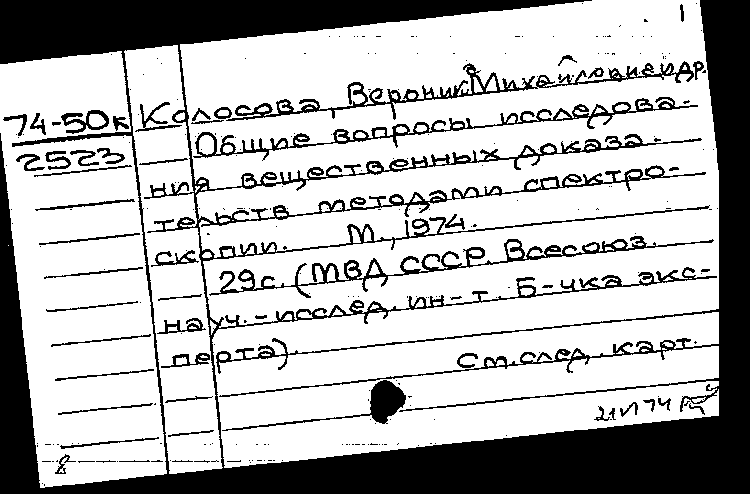 1
74-50к
2523
Колосова, Вероника Михайловна и др.
Общие вопросы исследова-
ния вещественных доказа-
тельств методами спектро-
скопии. М., 1974.
29с. (МВД СССР. Всесоюз.
науч.-исслед. ин-т. Б-чка экс-
перта).
См. след. карт.
74
8